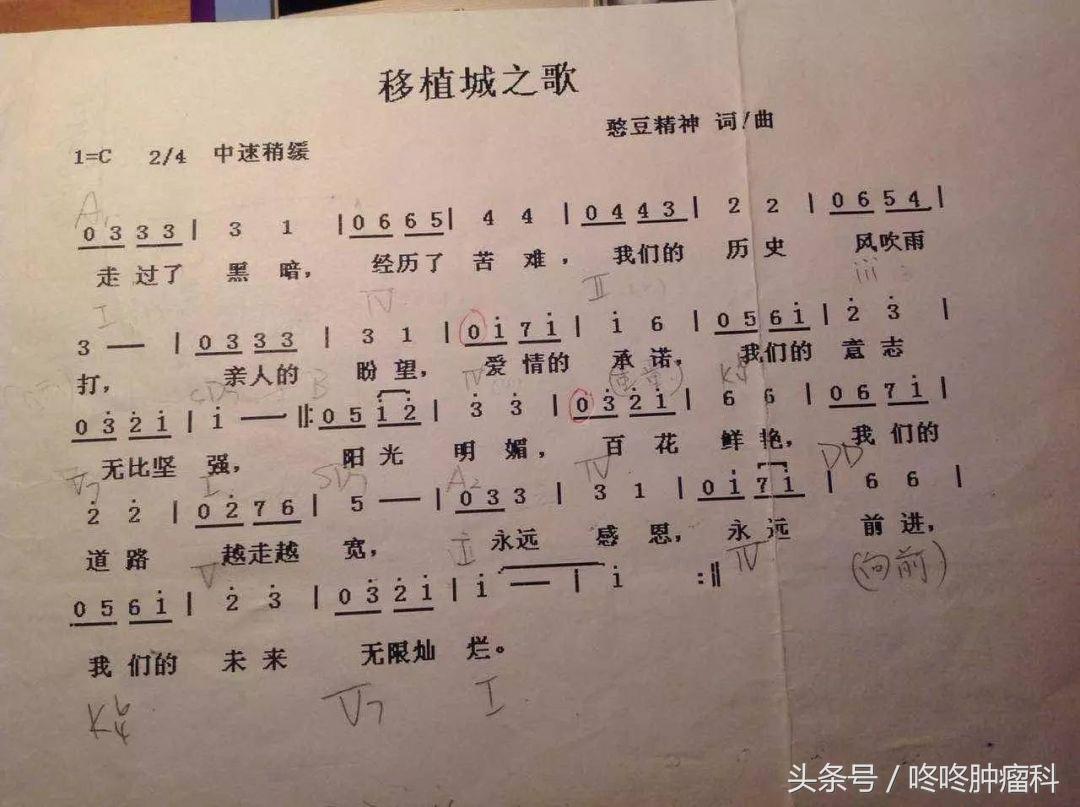 移植城之歌
憨豆精神 词/曲
1=C 2/4 中速稍缓
A₁
0 3 3 3 | 3 1 | 0 6 6 5 | 4 4 | 0 4 4 3 | 2 2 | 0 6 5 4 |
走过了 黑暗， 经历了 苦难， 我们的 历史 风吹雨
I IV II iii
3 — | 0 3 3 3 | 3 1 | 0 i̇ 7 i̇ | i̇ 6 | 0 5 6 i̇ | 2̇ 3̇ |
打， 亲人的 盼望， 爱情的 承诺， 我们的 意志
B IV K
0 3̇ 2̇ i̇ | i̇ — ‖: 0 5 i̇ 2̇ | 3̇ 3̇ | 0 3̇ 2̇ i̇ | 6 6 | 0 6 7 i̇ |
无比坚 强， 阳光 明媚， 百花 鲜艳， 我们的
V₇ I A₂ IV DD
2̇ 2̇ | 0 2̇ 7 6 | 5 — | 0 3 3 3 | 3 1 | 0 i̇ 7 i̇ | 6 6 |
道路 越走越 宽， 永远 感恩， 永远 前进，
V I IV (向前)
0 5 6 i̇ | 2̇ 3̇ | 0 3̇ 2̇ i̇ | i̇ — | i̇ :‖
我们的 未来 无限灿 烂。
K6/4 V₇ I
头条号 / 咚咚肿瘤科